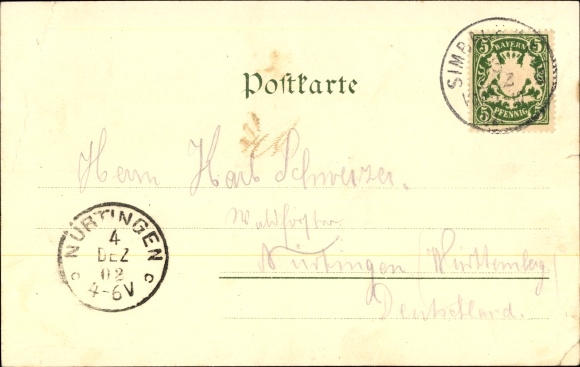 5 BAYERN 5
5 PFENNIG 5
SIMB
Postkarte
Herrn Karl Schweizer.
Waldhörster
Nürtingen (Württemberg)
Deutschland.
NÜRTINGEN
4
DEZ
02
4-6V